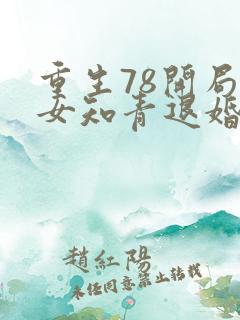 重生78開局
女知青退婚
趙紅陽
未經同意禁止轉載